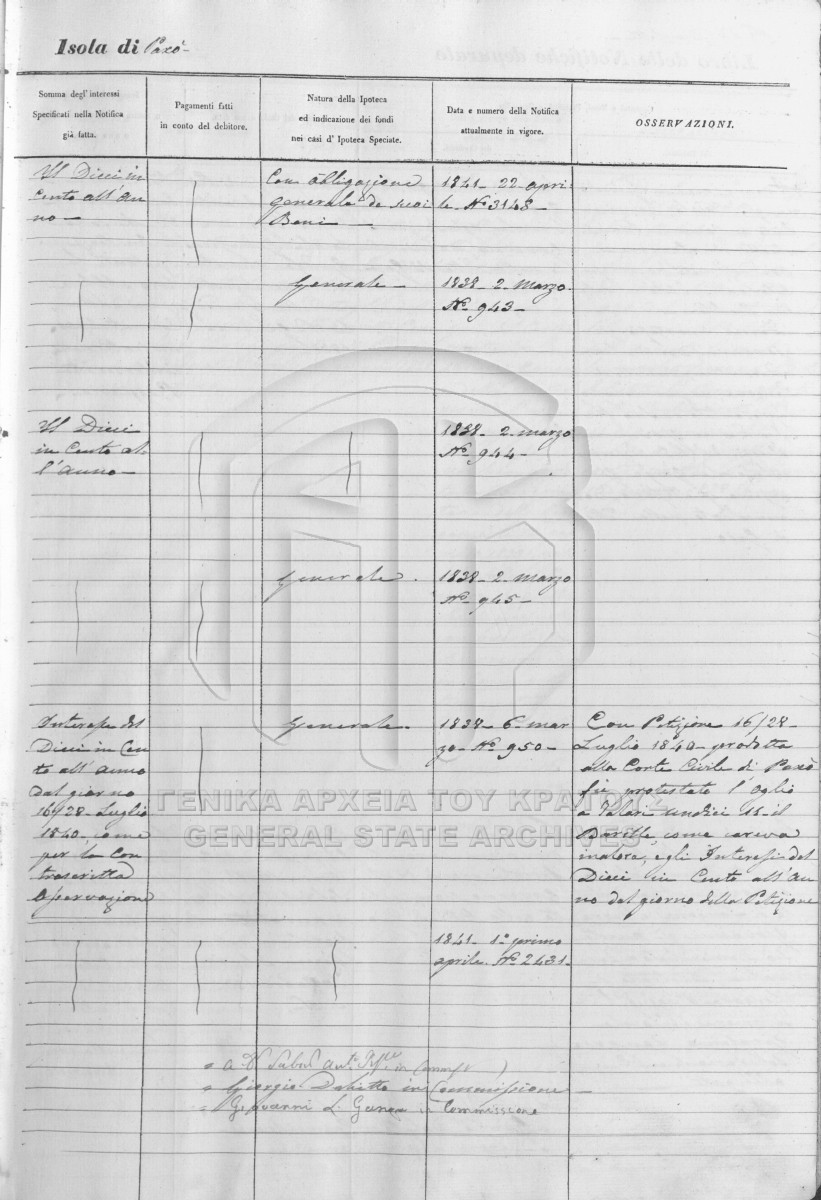 Isola di Paxò
Somma degl' interessi
Specificati nella Notifica
già fatta.
Pagamenti fatti
in conto del debitore.
Natura della Ipoteca
ed indicazione dei fondi
nei casi d' Ipoteca Speciale.
Data e numero della Notifica
attualmente in vigore.
OSSERVAZIONI.
Il Dieci in
Cento all' an
no —
Con obligazione
generale de suoi
Beni —
1841 - 22 apri
le No 3148 —
Generale —
1838 - 2 - marzo
No 943 —
Il Dieci
in Cento al
l'anno —
1838 - 2 - marzo
No 944 —
Generale.
1838 - 2 - marzo
No 945 —
Interesse del
Dieci in Cen
to all' anno
dal giorno
16/28 Luglio
1840 - come
per la Con
troscritta
Osservazione
Generale.
1838 - 6 - mar
zo - No 950 -
Con Petizione 16/28
Luglio 1840 - prodotta
alla Corte Civile di Paxò
fu protestato l' Oglio
a Talari undici 11 - il
Barille, come correva
inalora, e gli Interessi del
Dieci in Cento all' an
no dal giorno della Petizione
1841 - 1o primo
aprile - No 2431 -
in Commiss
Giorgio in Commissione
Giovanni L. in Commissione
ΓΕΝΙΚΑ ΑΡΧΕΙΑ ΤΟΥ ΚΡΑΤΟΥΣ
GENERAL STATE ARCHIVES